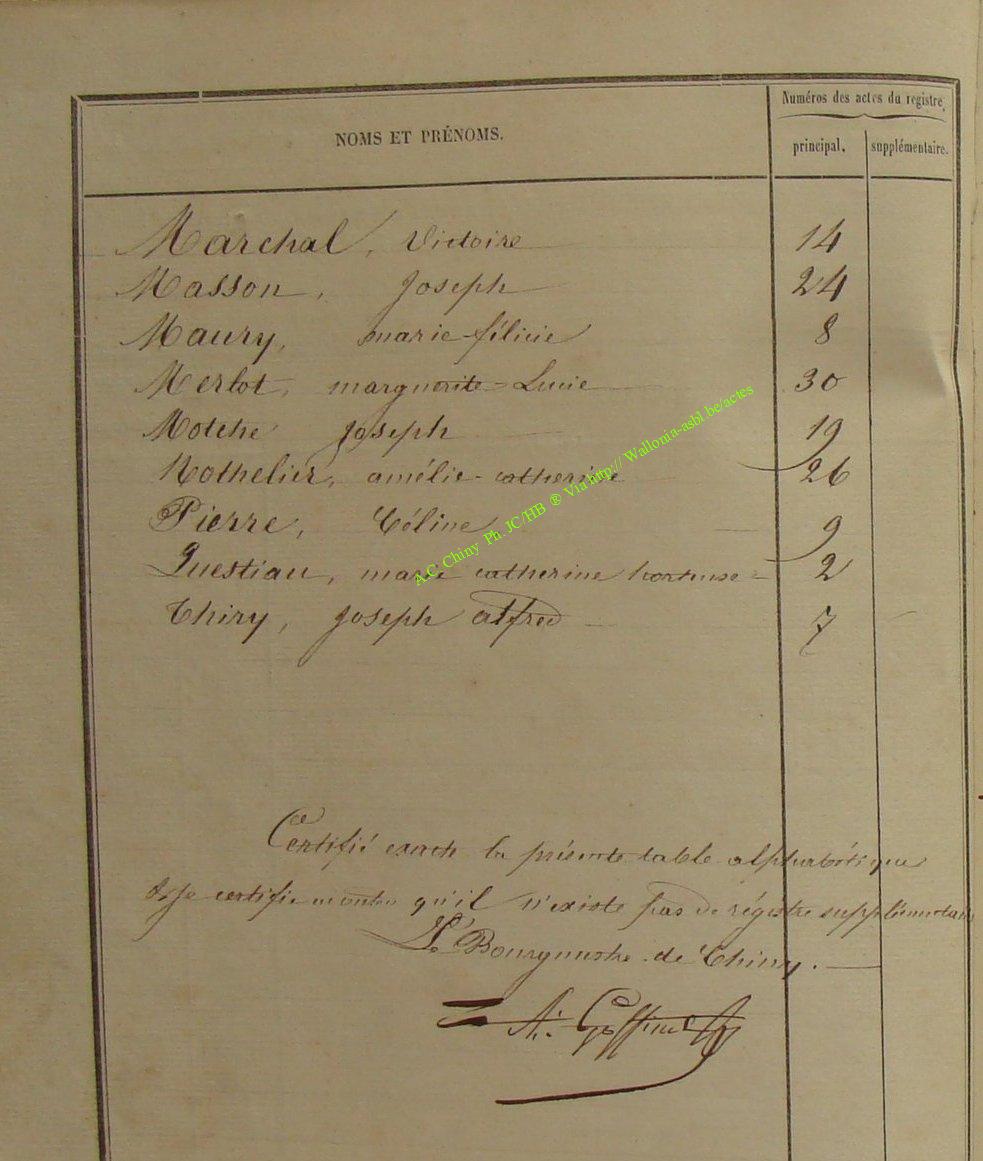 NOMS ET PRÉNOMS.
Numéros des actes du registre,
principal.
supplémentaire.
Marchal, Victoire 14
Masson, Joseph 24
Maury, marie-félicie 8
Merlot, marguerite-Lucie 30
Motché Joseph 19
Nothelier, amélie-catherine 26
Pierre, Céline 9
Questiau, marie catherine hortense 2
Thiry, Joseph alfred 7
A.C. Chiny Ph. JC/HB ® Via http:// Wallonia-asbl.be/actes
Certifié exacte la présente table alphabétique
certifie qu'il n'existe pas de régistre supplémentaire
Le Bourgmestre de Chiny.